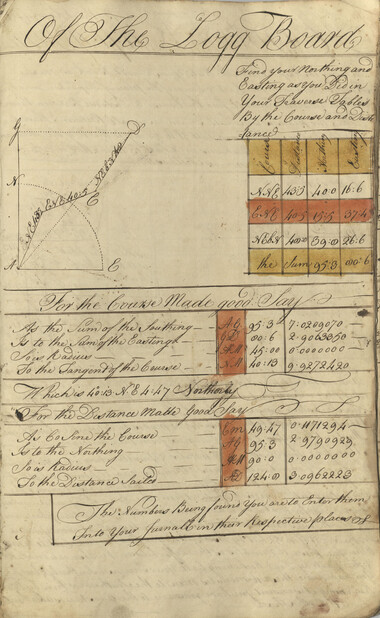 Of The Logg Board
Find your Northing and
Easting as you Did in
Your Traverse Tables
By the Course and Dis
tance
Course Distance Northing Easting
NNE 43:5 40:0 16:6
ENE 40:5 15:5 37:4
NEbN 40:0 39:0 26:6
the Sum 95:3
G D
N C
A E
ENE 40:5
For the Course Made good Say
As the Sum of the Southing — 95:3 7:0209070
Is to the Sum of the Easting
So is Radius — 45:00 0:0000000
To the Tangent of the Course — 40:13 9:9272420
Which is 40:13 N E 4:47 Northerly
For the Distance Made Good Say
As Co Sine the Course — 49:47 0:1171294
Is to the Northing 95:3 2:9790929
So is Radius — 90:0 0:0000000
To the Distance Sailed — 124:0 3:0962223
The Numbers Being found You are to Enter them
Into Your Jurnall in their Respective places